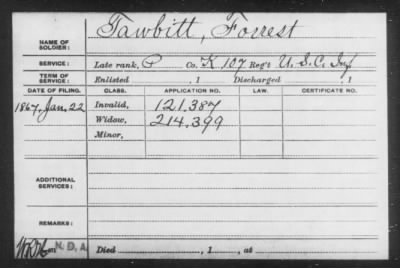 NAME OF SOLDIER: Tawbitt, Forrest
SERVICE: Late rank, P Co. K 107 Reg't U.S.C. Inf
TERM OF SERVICE: Enlisted , 1 Discharged , 1
DATE OF FILING. CLASS. APPLICATION NO. LAW. CERTIFICATE NO.
1867, Jan. 22 Invalid, 121,387
Widow, 214,399
Minor,
ADDITIONAL SERVICES:
REMARKS:
N.D.A. Died , 1 , at